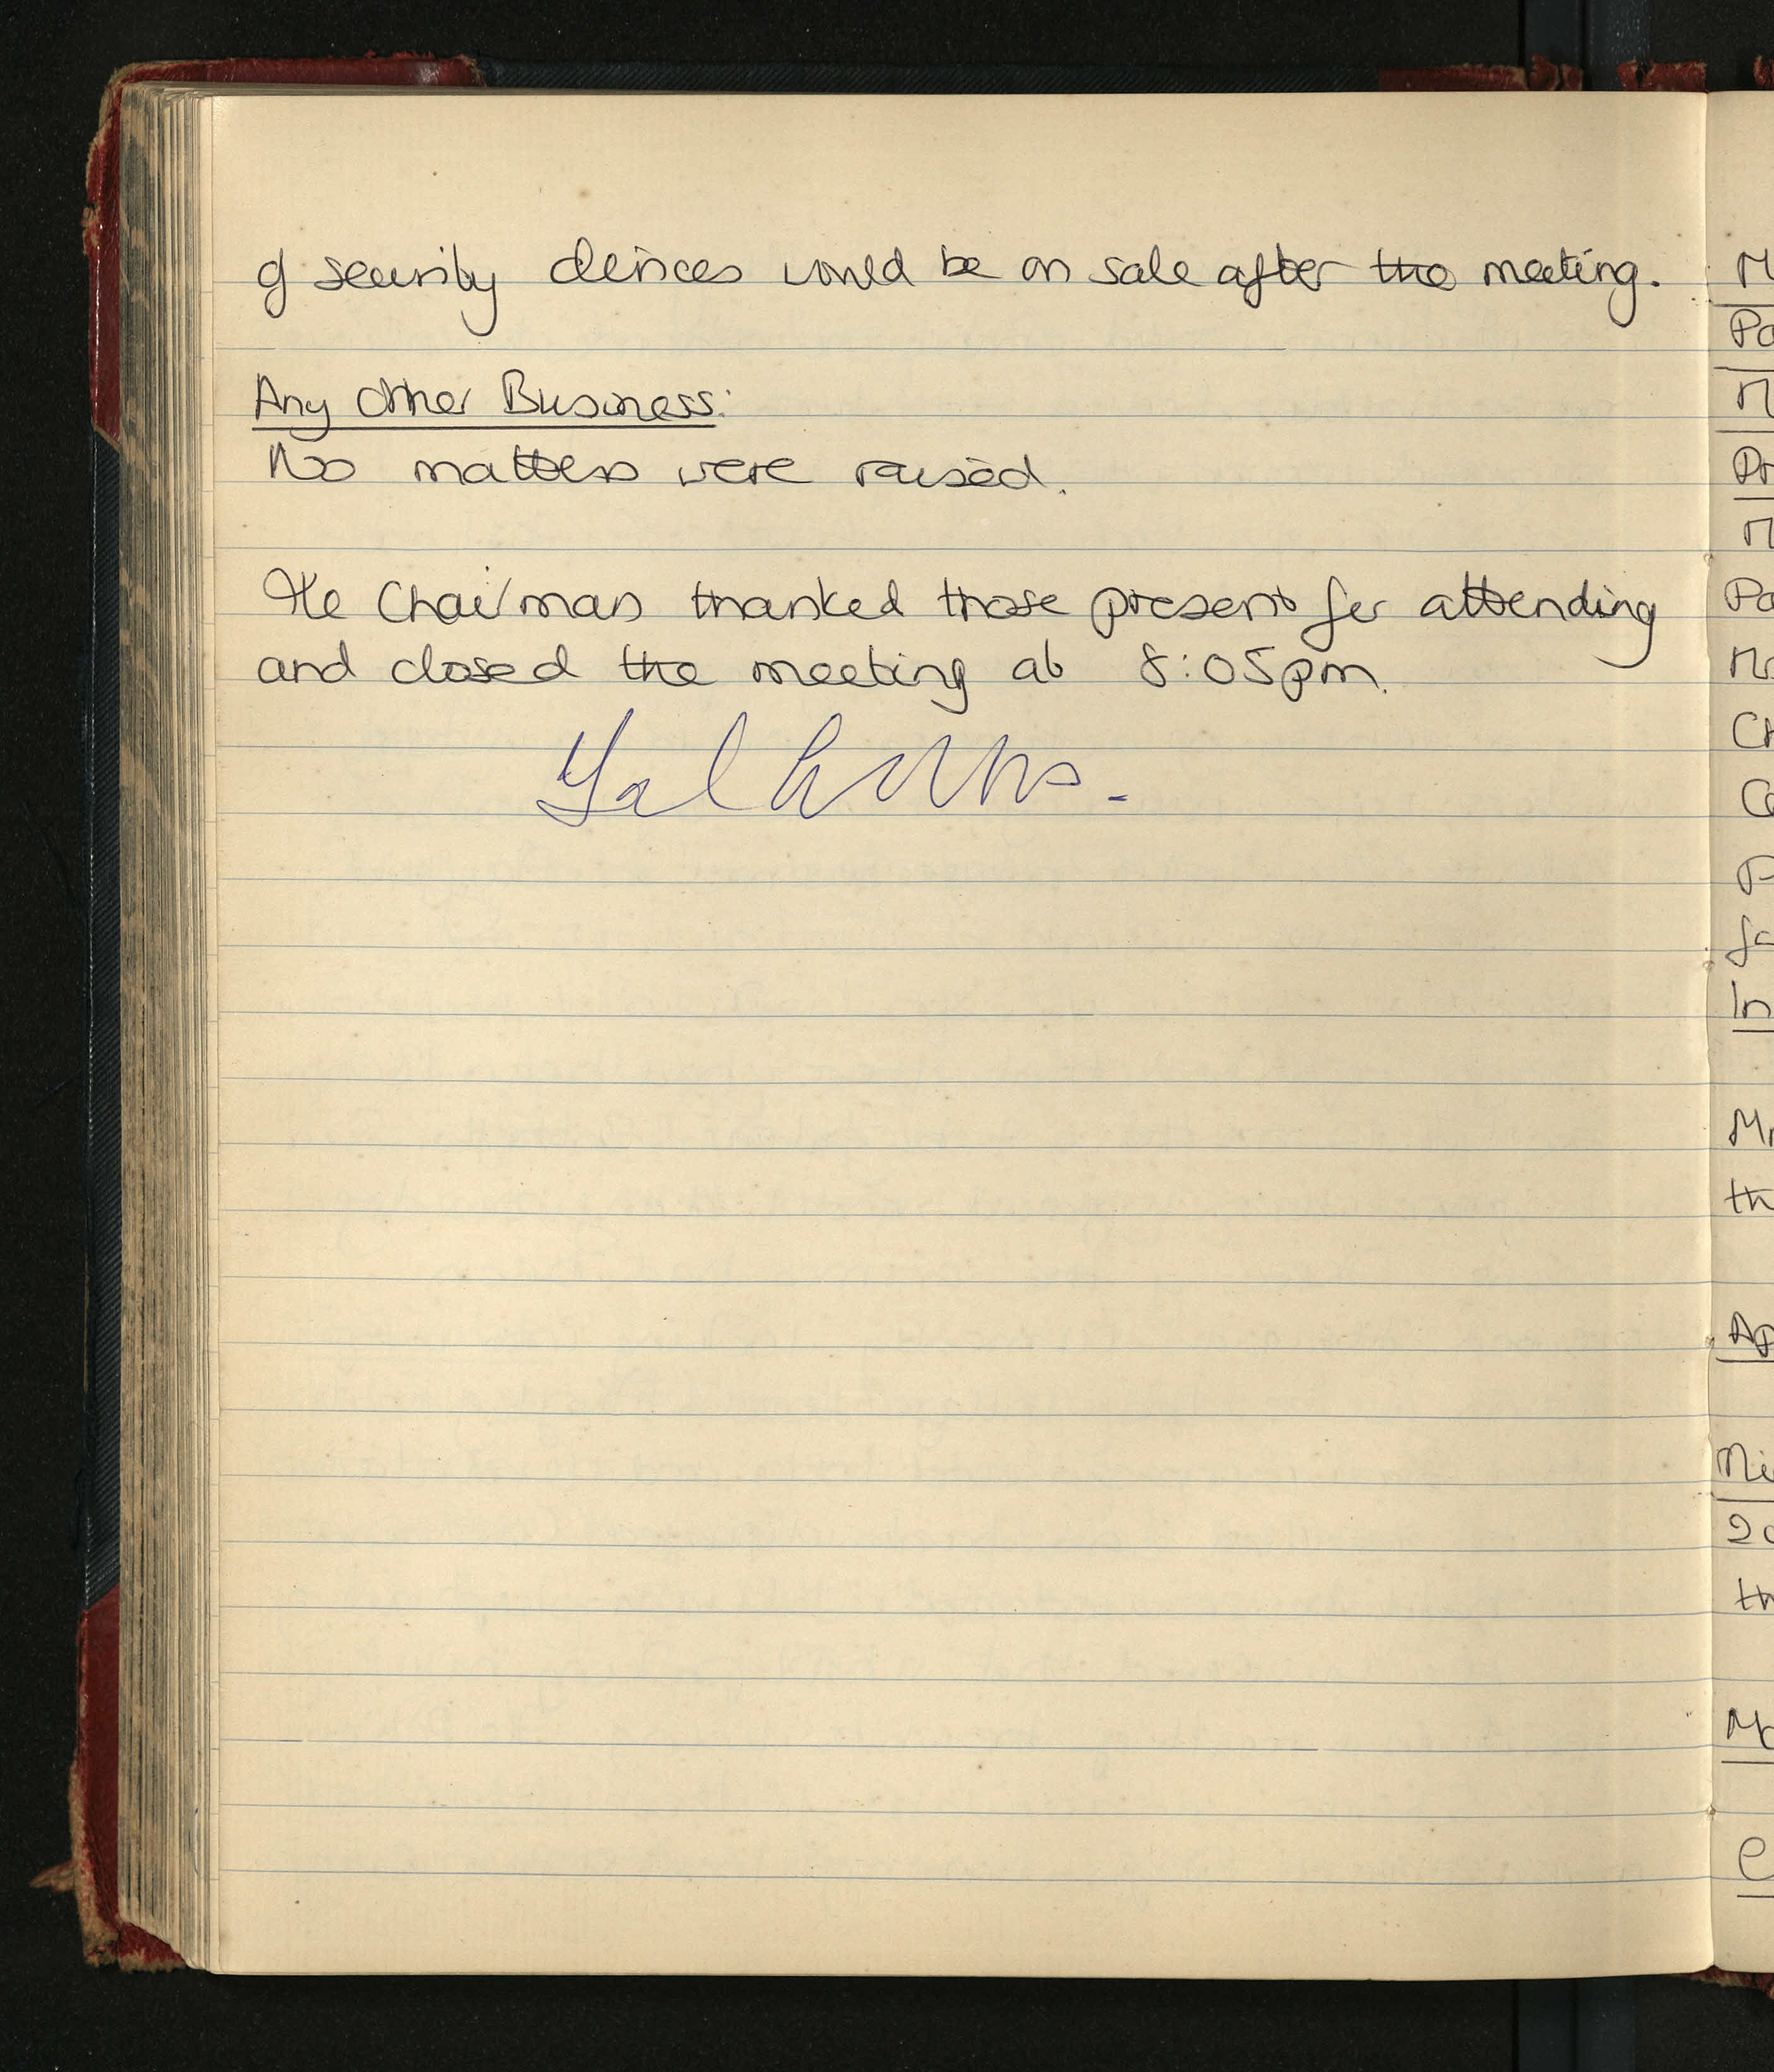 of security devices would be on sale after the meeting.
Any Other Business:
No matters were raised.
The Chairman thanked those present for attending
and closed the meeting at 8:05pm.
M
Po
M
Pr
M
Po
Mr
Ch
Co
P
fo
In
Mr
th
Ap
Mi
20
th
Mo